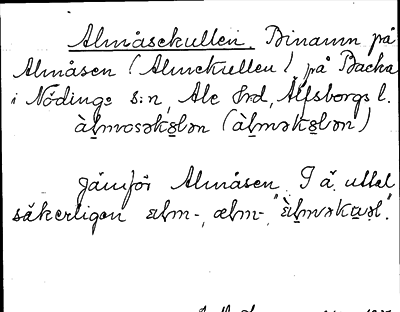 Almåsekullen. Binamn på
Almåsen (Almekullen) på Backa
i Nödinge s:n, Ale hrd, Älfsborgs l.
àl̥mosəkɵlən (àl̥məkɵlən)
Jämför Almåsen. I ä. uttal
säkerligen alm-, ælm-, "àl̥məkɷəl".